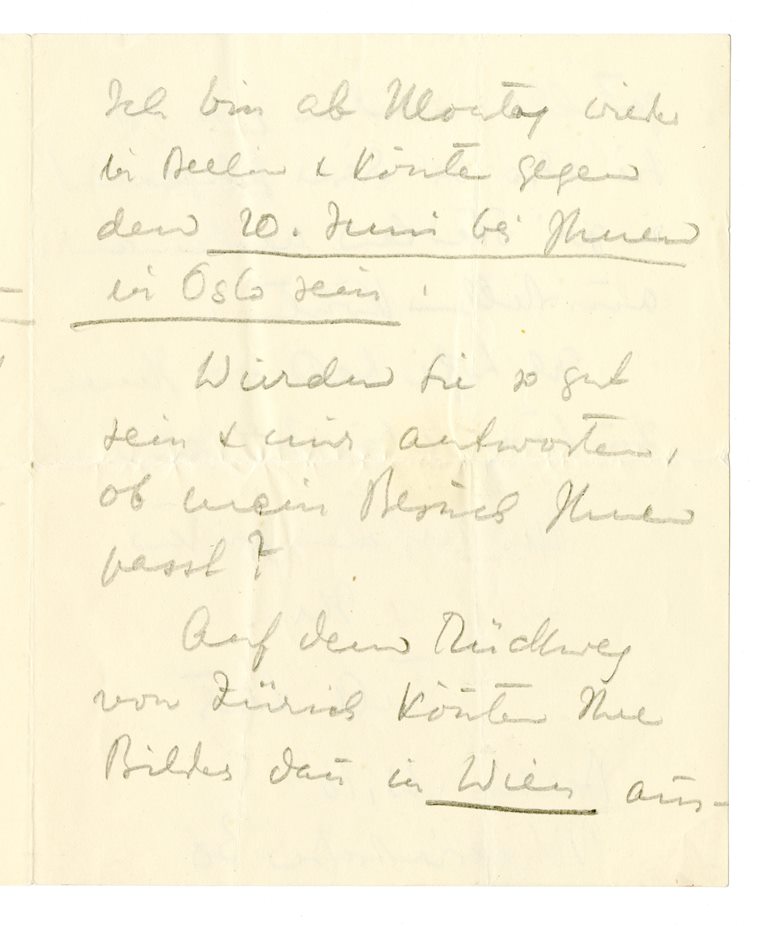 Ich bin ab Montag wieder
in Berlin & könnte gegen
den 20. Juni bei Ihnen
in Oslo sein.
Würden Sie so gut
sein & mir antworten,
ob mein Besuch Ihnen
passt?
Auf dem Rückweg
von Zürich könnten Ihre
Bilder dann in Wien aus-